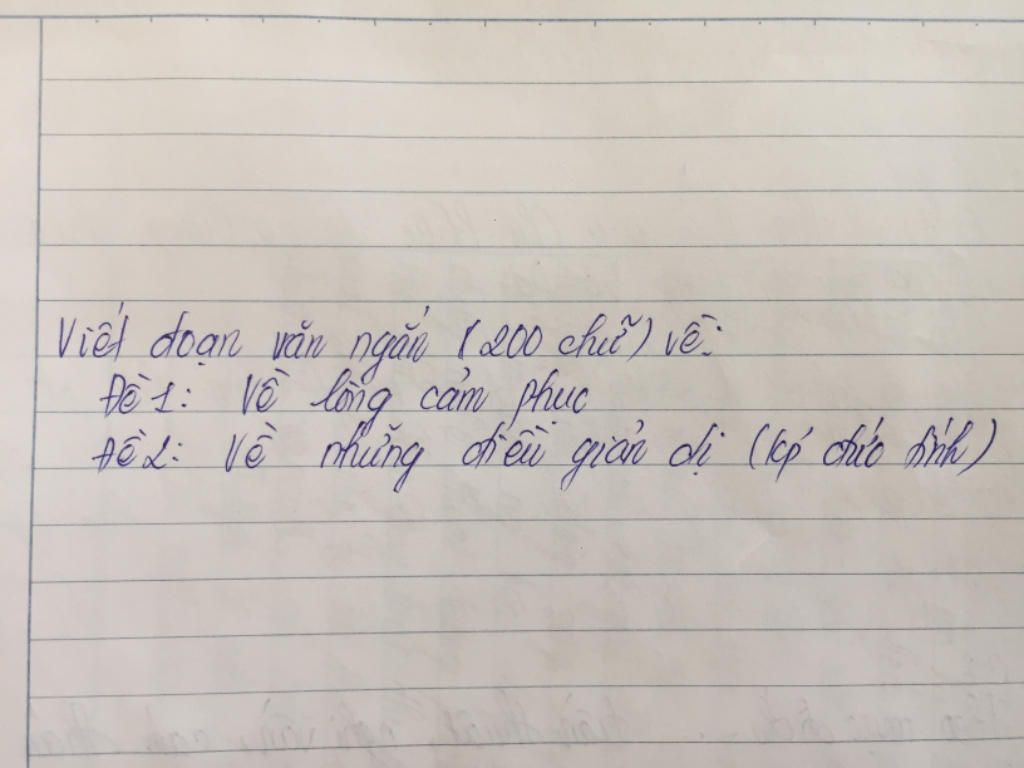 Viết đoạn văn ngắn (200 chữ) về:
Đề 1: Về lòng cảm phục
Đề 2: Về những điều giản dị (kp đức tính)